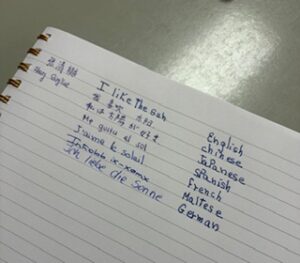 I like The Sun
我 喜欢 太阳
私は 太陽 が 好き
Me gusta el sol
J'aime le soleil
Inħobb ix-xemx
Ich liebe die Sonne
English
chinese
Japanese
Spanish
French
Maltese
German